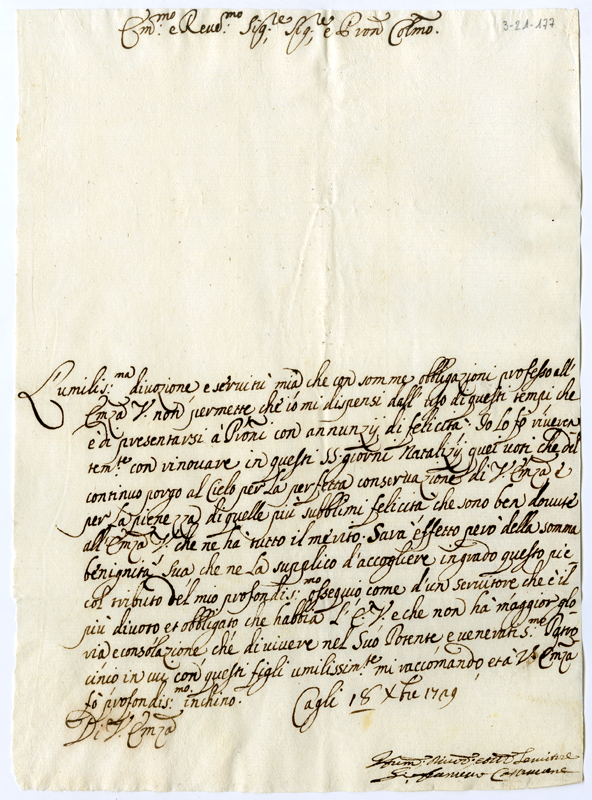 Em:mo e Reud:mo Sig:re Sig:re e Pron Colmo.
3-21-177
L'umilis:ma diuozione e seruitù mia che con somme obbligazioni professo all'
Emza V. non permette che io mi dispensi dall'uso di questi tempi che
è di presentarsi à P'roni con annunzij di felicità. Io Lo fò riueren
tem:te con rinouare in questi SS. giorni Natalizij quei uoti che del
continuo porgo al Cielo per La perfetta conseruazione di V. Emza e
per La pienezza di quelle più subblimi felicità che sono ben douute
all'Emza V. che ne hà tutto il merito. Sarà effetto però della somma
benignità Sua che ne La supplico d'accogliere in grado questo pic
col tributo del mio profondis:mo ossequio come d'un seruitore che è il
più diuoto et obbligato che habbia L'E.V. e che non hà maggior glo
ria e consolazione che di uiuere nel Suo Potente e ueneratis:mo Patro
cinio in cui con questi figli umilissim:te mi raccomando, et à V. Emza
fò profondis:mo inchino. Cagli 18 Xbre 1709
Di V. Emza